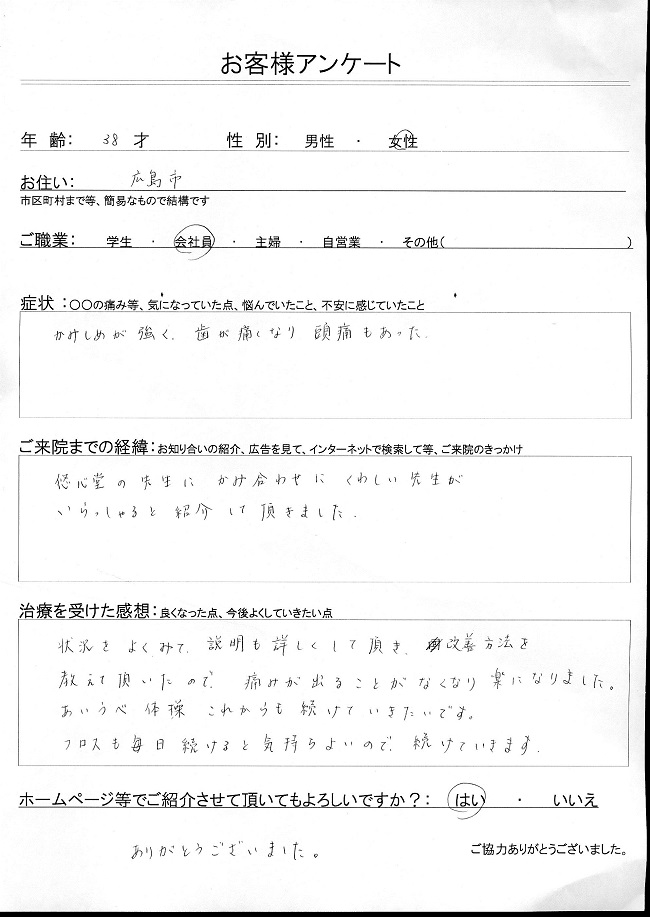 お客様アンケート
年 齢： 38 才 性 別： 男性 ・ 女性
お住い： 広島市
市区町村まで等、簡易なもので結構です
ご職業： 学生 ・ 会社員 ・ 主婦 ・ 自営業 ・ その他( )
症状：○○の痛み等、気になっていた点、悩んでいたこと、不安に感じていたこと
かみしめが強く、歯が痛くなり 頭痛もあった。
ご来院までの経緯：お知り合いの紹介、広告を見て、インターネットで検索して等、ご来院のきっかけ
悠心堂の先生に かみ合わせに くわしい先生が
いらっしゃると紹介して頂きました。
治療を受けた感想：良くなった点、今後よくしていきたい点
状況をよくみて、説明も詳しくして頂き、改善方法を
教えて頂いたので、痛みが出ることがなくなり楽になりました。
あいうべ体操 これからも続けていきたいです。
フロスも毎日続けると気持ちよいので、続けていきます。
ホームページ等でご紹介させて頂いてもよろしいですか？： はい ・ いいえ
ありがとうございました。
ご協力ありがとうございました。